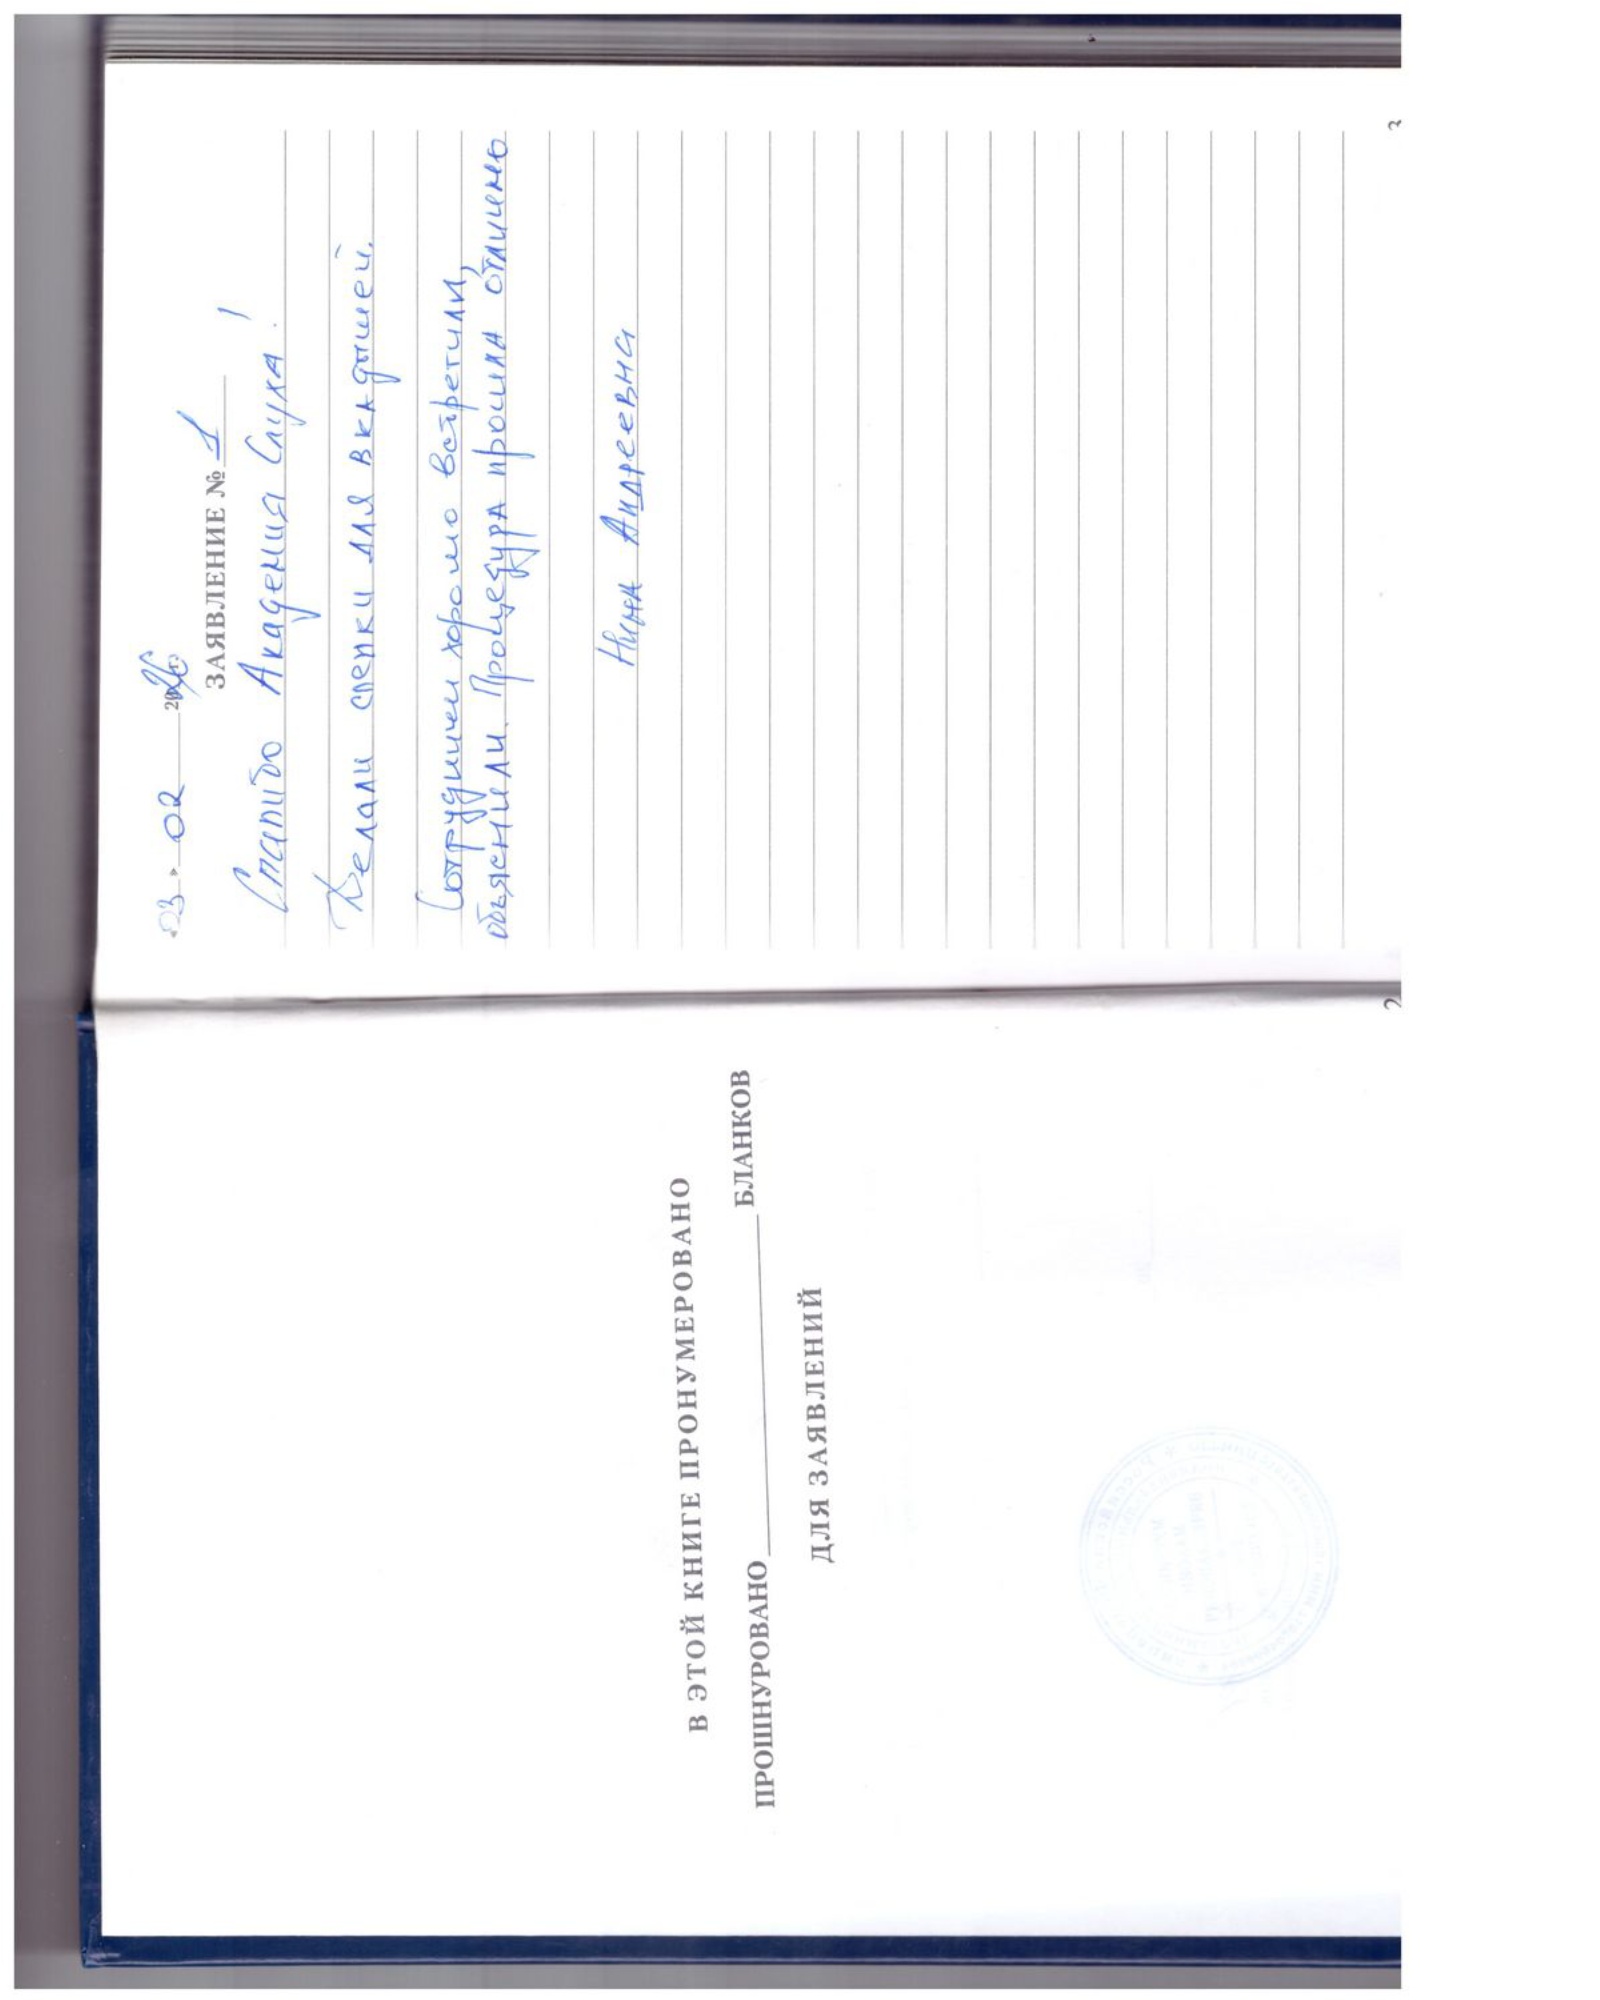 В ЭТОЙ КНИГЕ ПРОНУМЕРОВАНО
ПРОШНУРОВАНО____________БЛАНКОВ
ДЛЯ ЗАЯВЛЕНИЙ
2
«03» 02 2026
ЗАЯВЛЕНИЕ № 1
Спасибо Академия Слуха!
Делали слепки для вкладышей.
Сотрудники хорошо встретили,
объяснили. Процедура прошла отлично
Нина Андреевна
3